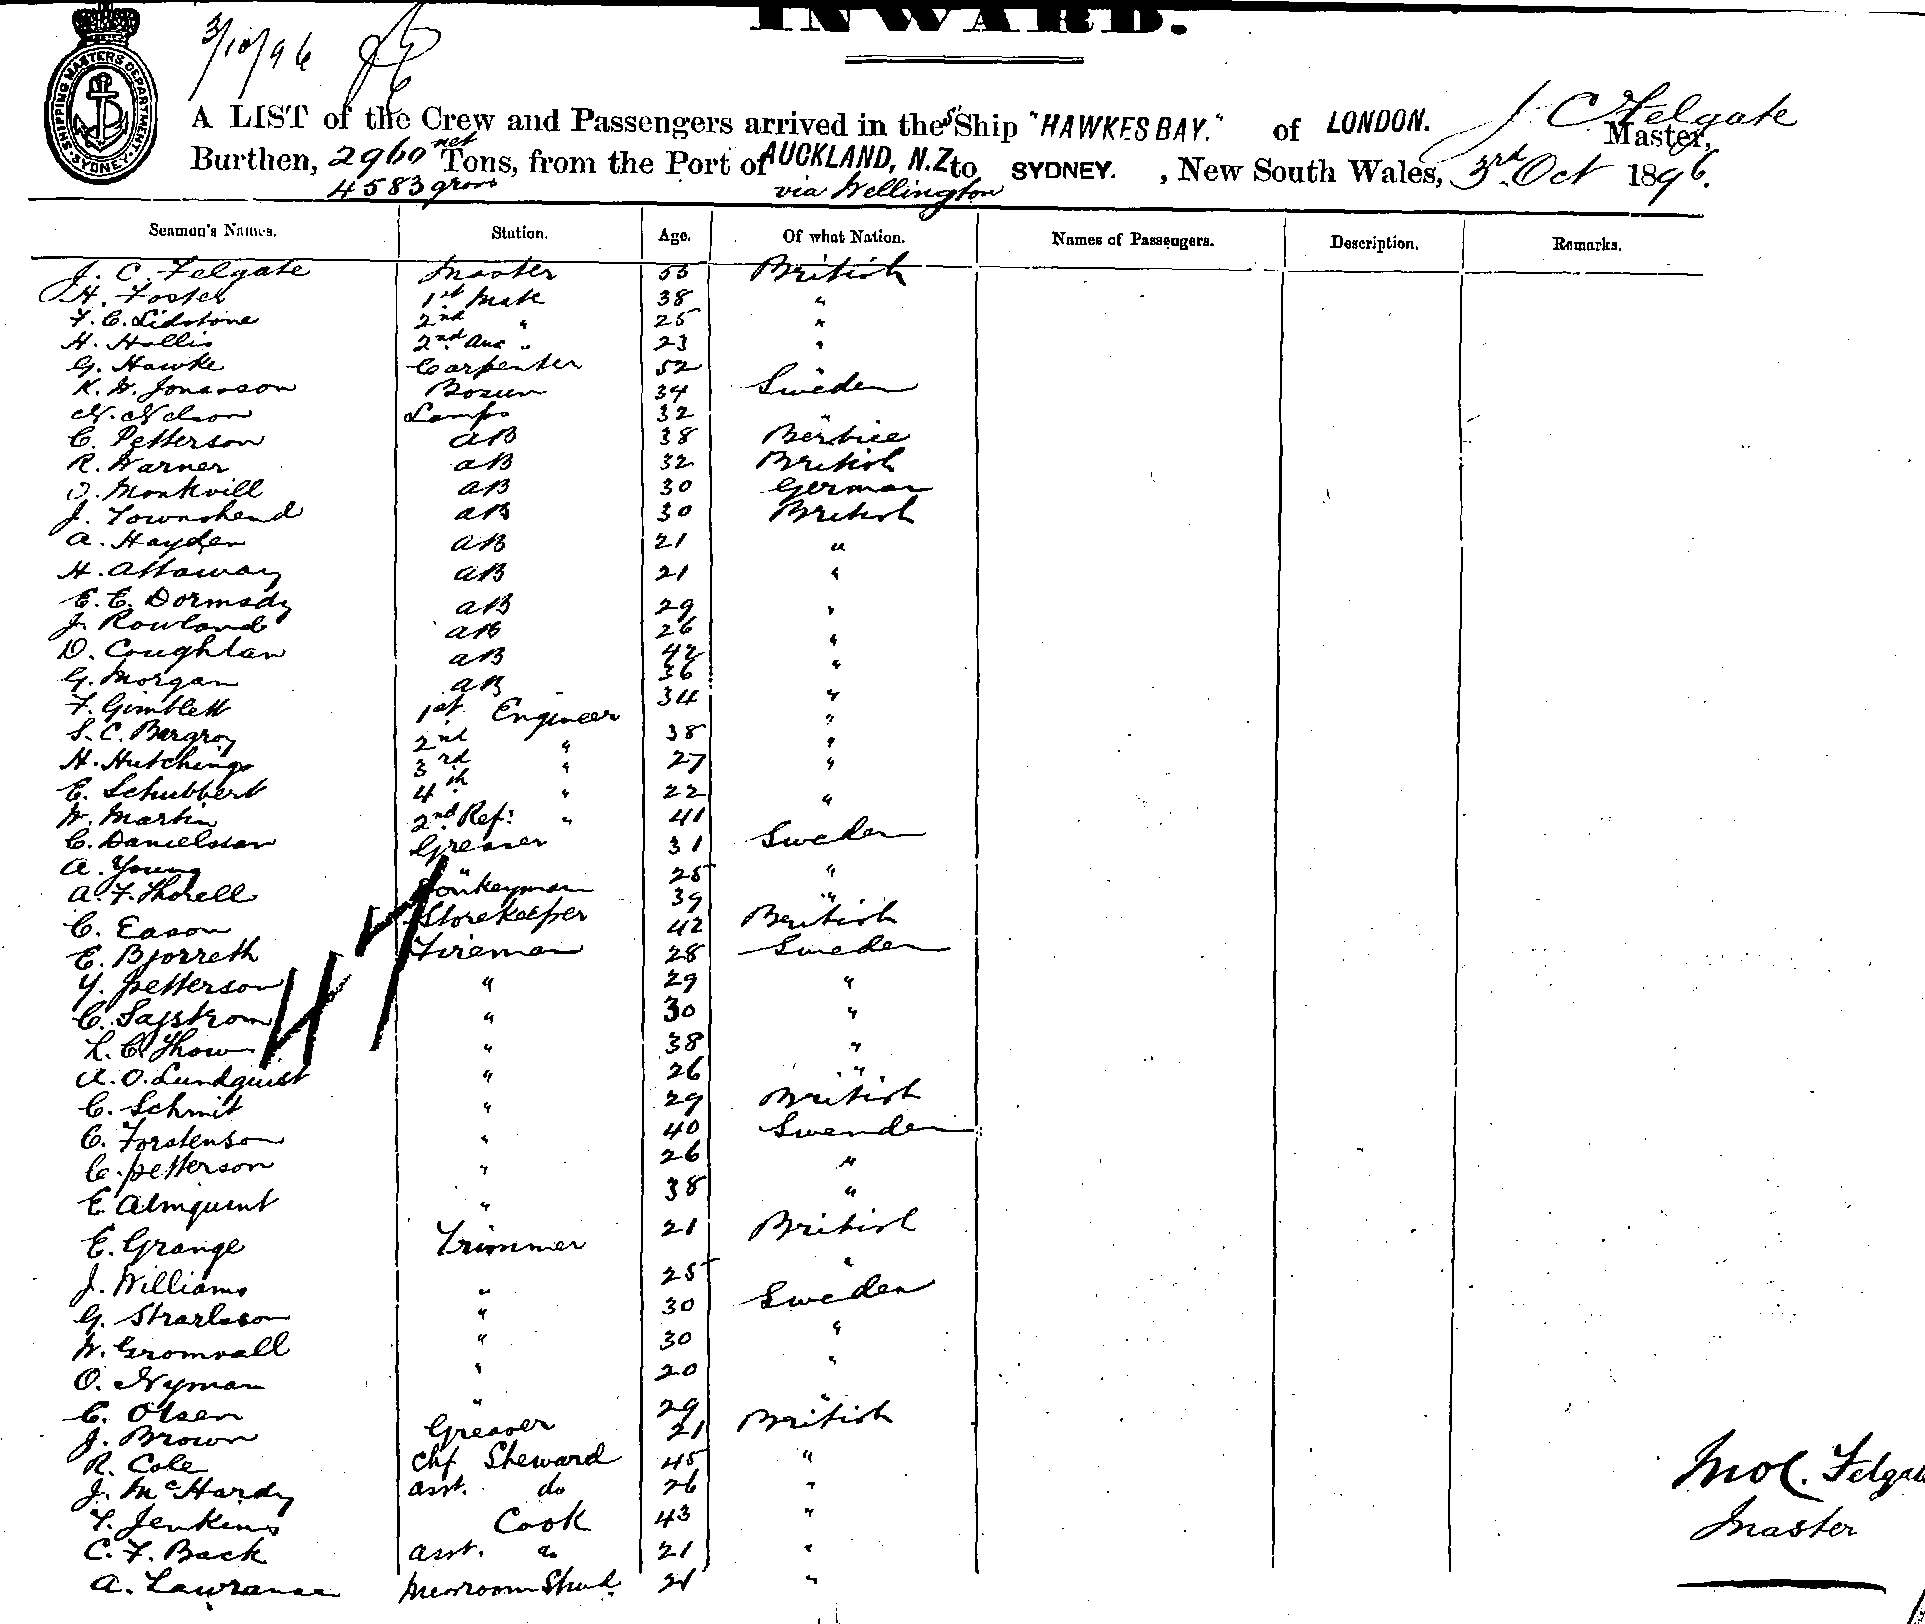 INWARD.
3/10/96
SHIPPING MASTERS DEPARTMENT
A LIST of the Crew and Passengers arrived in the S Ship "HAWKES BAY." of LONDON. J. C Felgate Master,
Burthen, 2960 net Tons, from the Port of AUCKLAND, N.Z to SYDNEY. , New South Wales, 3rd Oct 1896.
4583 gross via Wellington
Seamen's Names. Station. Age. Of what Nation. Names of Passengers. Description. Remarks.
J. C. Felgate Master 55 British
H. Foster 1st Mate 38 "
F. C. Lidstone 2nd " 25 "
H. Hollis 2nd Aux " 23 "
G. Hawke Carpenter 52 "
K. W. Jonasson Bosun 34 Sweden
N. Nelson Lamps 32 "
C. Petterson AB 38 Berbice
R. Warner AB 32 British
Monkvill AB 30 German
J. Townshend AB 30 British
A. Hayden AB 21 "
H. Attaway AB 21 "
E. E. Dormady AB 29 "
J. Rowland AB 26 "
D. Coughlan AB 42 "
G. Morgan AB 36 "
F. Gimblett 1st Engineer 34 "
S. C. Bargroy 2nd " 38 "
H. Hutchings 3rd " 27 "
E. Schubbert 4th " 22 "
W. Martin 2nd Ref: " 41 "
C. Danielsson Greaser 31 Sweden
A. Young " 25 "
A. F. Thorell Donkeyman 39 "
C. Eason Storekeeper 42 British
E. Bjorreth Fireman 28 Sweden
Y. petterson " 29 "
C. Safstrom " 30 "
L. C. Thow " 38 "
A. O. Lundquist " 26 "
C. Schmit " 29 British
C. Torstenson " 40 Swenden
C. petterson " 26 "
E Almquint " 38 "
E. Grange Trimmer 21 British
J. Williams " 25 "
G. Strarlsson " 30 Sweden
W. Gromvall " 30 "
O. Nyman " 20 "
C. Olsen " 29 "
J. Brown Greaser 21 British
R. Cole Chf Steward 45 "
J. McHardy asst. do 26 "
T. Jenkins Cook 43 "
C. F. Back asst. do 21 "
A. Lawranse Messroom Stwd. 21 "
47
Jno C. Felgate
Master